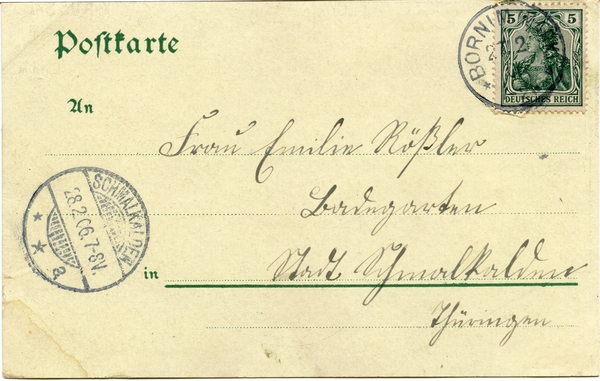 Postkarte
5 5
DEUTSCHES REICH
BORNIM
An
Frau Emilie Rößler
Badegarten
in Stadt Schmalkalden
Thüringen
SCHMALKALDEN
28.2.06.7-8V.
a